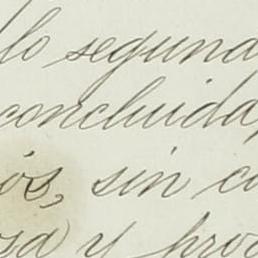 lo segunda
concluida,
os, sin co
sa y pro